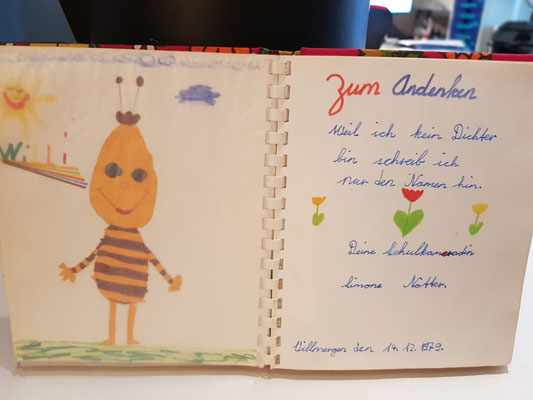 Willi
Zum Andenken
Weil ich kein Dichter
bin schreib ich
nur den Namen hin.
Deine Schulkameradin
Simone Notter.
Villmergen den 14.12.1979.